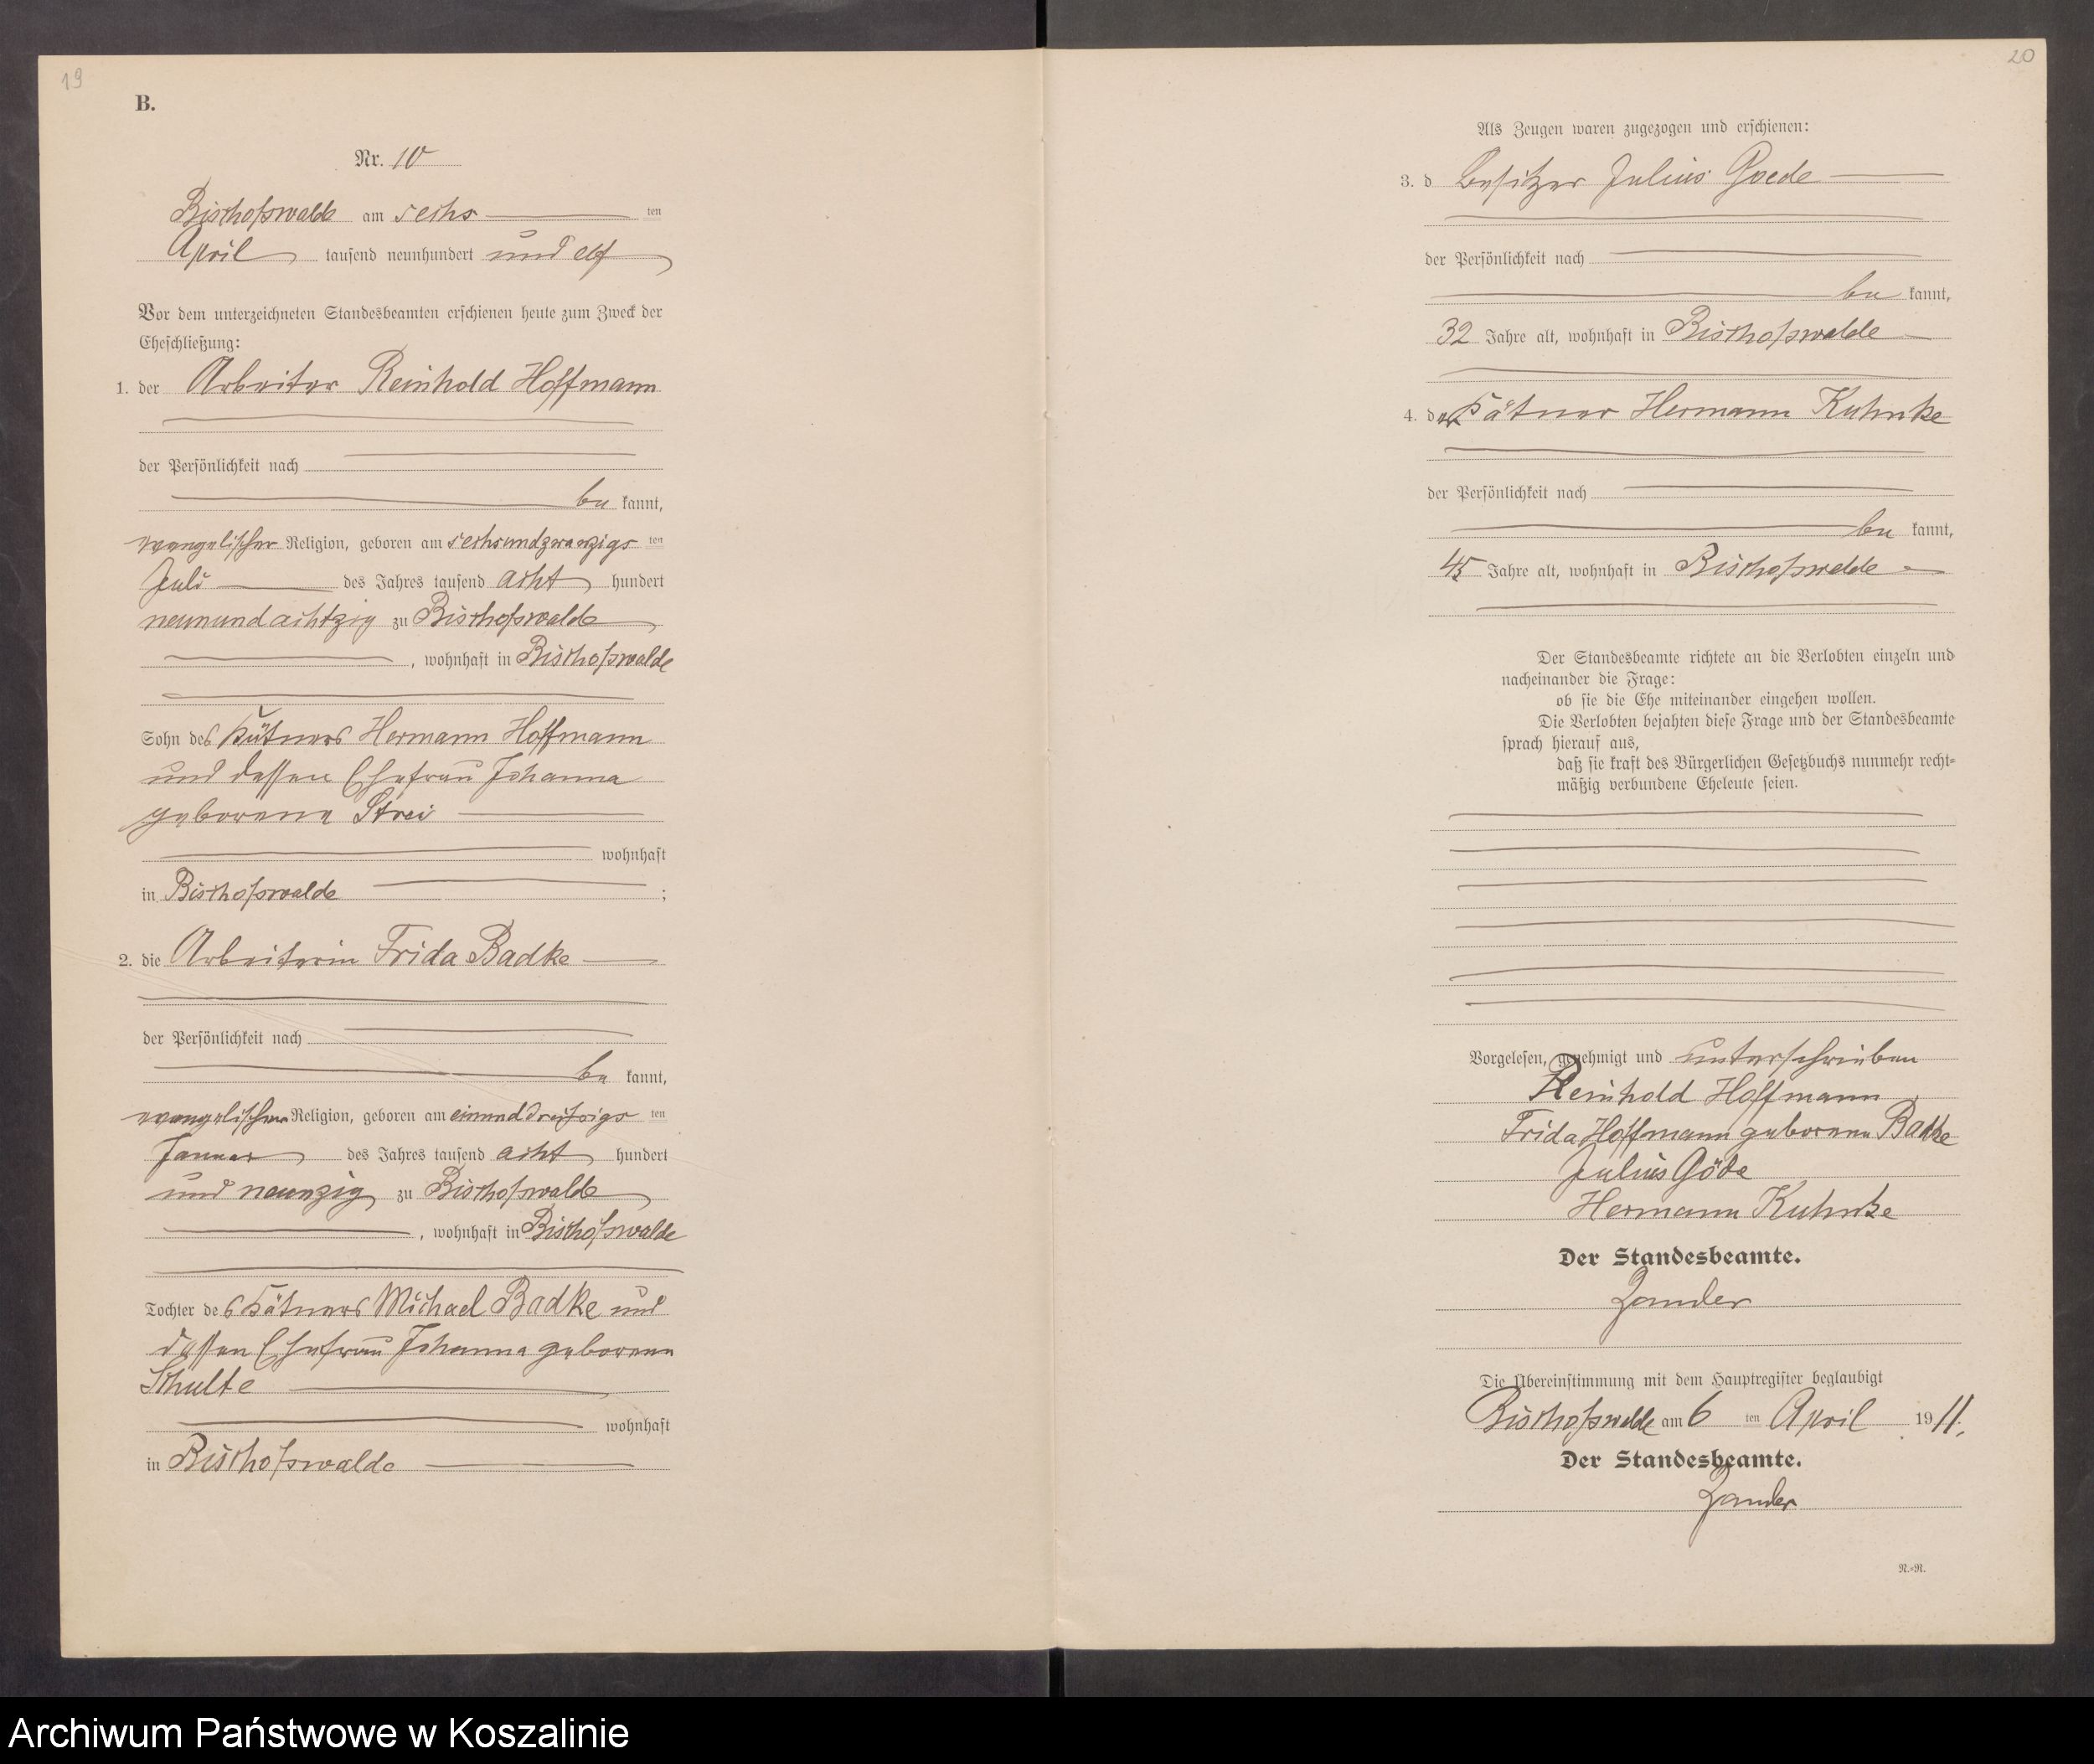 19
B.
Nr. 10
Bischofswalde am sechs ten
April tausend neunhundert und elf
Vor dem unterzeichneten Standesbeamten erschienen heute zum Zweck der
Eheschließung:
1. der Arbeiter Reinhold Hoffmann
der Persönlichkeit nach
be kannt,
evangelischer Religion, geboren am sechsundzwanzigs ten
Juli des Jahres tausend acht hundert
neunundachtzig zu Bischofswalde
, wohnhaft in Bischofswalde
Sohn des Kätners Hermann Hoffmann
und dessen Ehefrau Johanna
geborene Strei
wohnhaft
in Bischofswalde ;
2. die Arbeiterin Frida Badke
der Persönlichkeit nach
be kannt,
evangelischer Religion, geboren am einunddreißigs ten
Januar des Jahres tausend acht hundert
und neunzig zu Bischofswalde
, wohnhaft in Bischofswalde
Tochter des Kätners Michael Badke und
dessen Ehefrau Johanna geborene
Schulte
wohnhaft
in Bischofswalde
20
Als Zeugen waren zugezogen und erschienen:
3. d Besitzer Julius Goede
der Persönlichkeit nach
be kannt,
32 Jahre alt, wohnhaft in Bischofswalde
4. der Kätner Hermann Kuhnke
der Persönlichkeit nach
be kannt,
45 Jahre alt, wohnhaft in Bischofswalde
Der Standesbeamte richtete an die Verlobten einzeln und
nacheinander die Frage:
ob sie die Ehe miteinander eingehen wollen.
Die Verlobten bejahten diese Frage und der Standesbeamte
sprach hierauf aus,
daß sie kraft des Bürgerlichen Gesetzbuchs nunmehr recht-
mäßig verbundene Eheleute seien.
Vorgelesen, genehmigt und unterschrieben
Reinhold Hoffmann
Frida Hoffmann geborene Badke
Julius Göde
Hermann Kuhnke
Der Standesbeamte.
Zander
Die Übereinstimmung mit dem Hauptregister beglaubigt
Bischofswalde am 6 ten April 1911.
Der Standesbeamte.
Zander
R.-R.
Archiwum Państwowe w Koszalinie